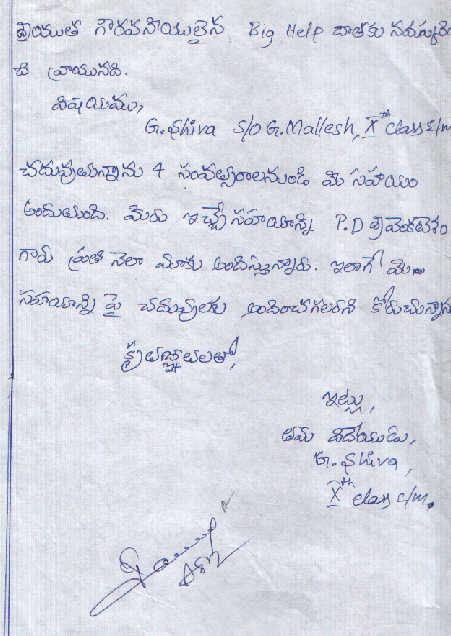 శ్రీయుత గౌరవనీయులైన Big Help దాతకు నమస్కరిం
చి వ్రాయునది.
విషయము,
G. Shiva S/o G. Mallesh, Xth class E/m
చదువుతున్నాను 4 సంవత్సరాలనుండి మీ సహాయం
అందుతుంది. మీరు ఇచ్చే సహాయాన్ని P.D శ్రీ వెంకటేశం
గారు ప్రతి నెలా మాకు అందిస్తున్నారు. ఇలాగే మీ
సహాయాన్ని పై చదువులకు అందించగలరని కోరుచున్నాను
కృతజ్ఞతలతో,
ఇట్లు,
తమ విదేయుడు,
G. Shiva,
Xth class E/m.